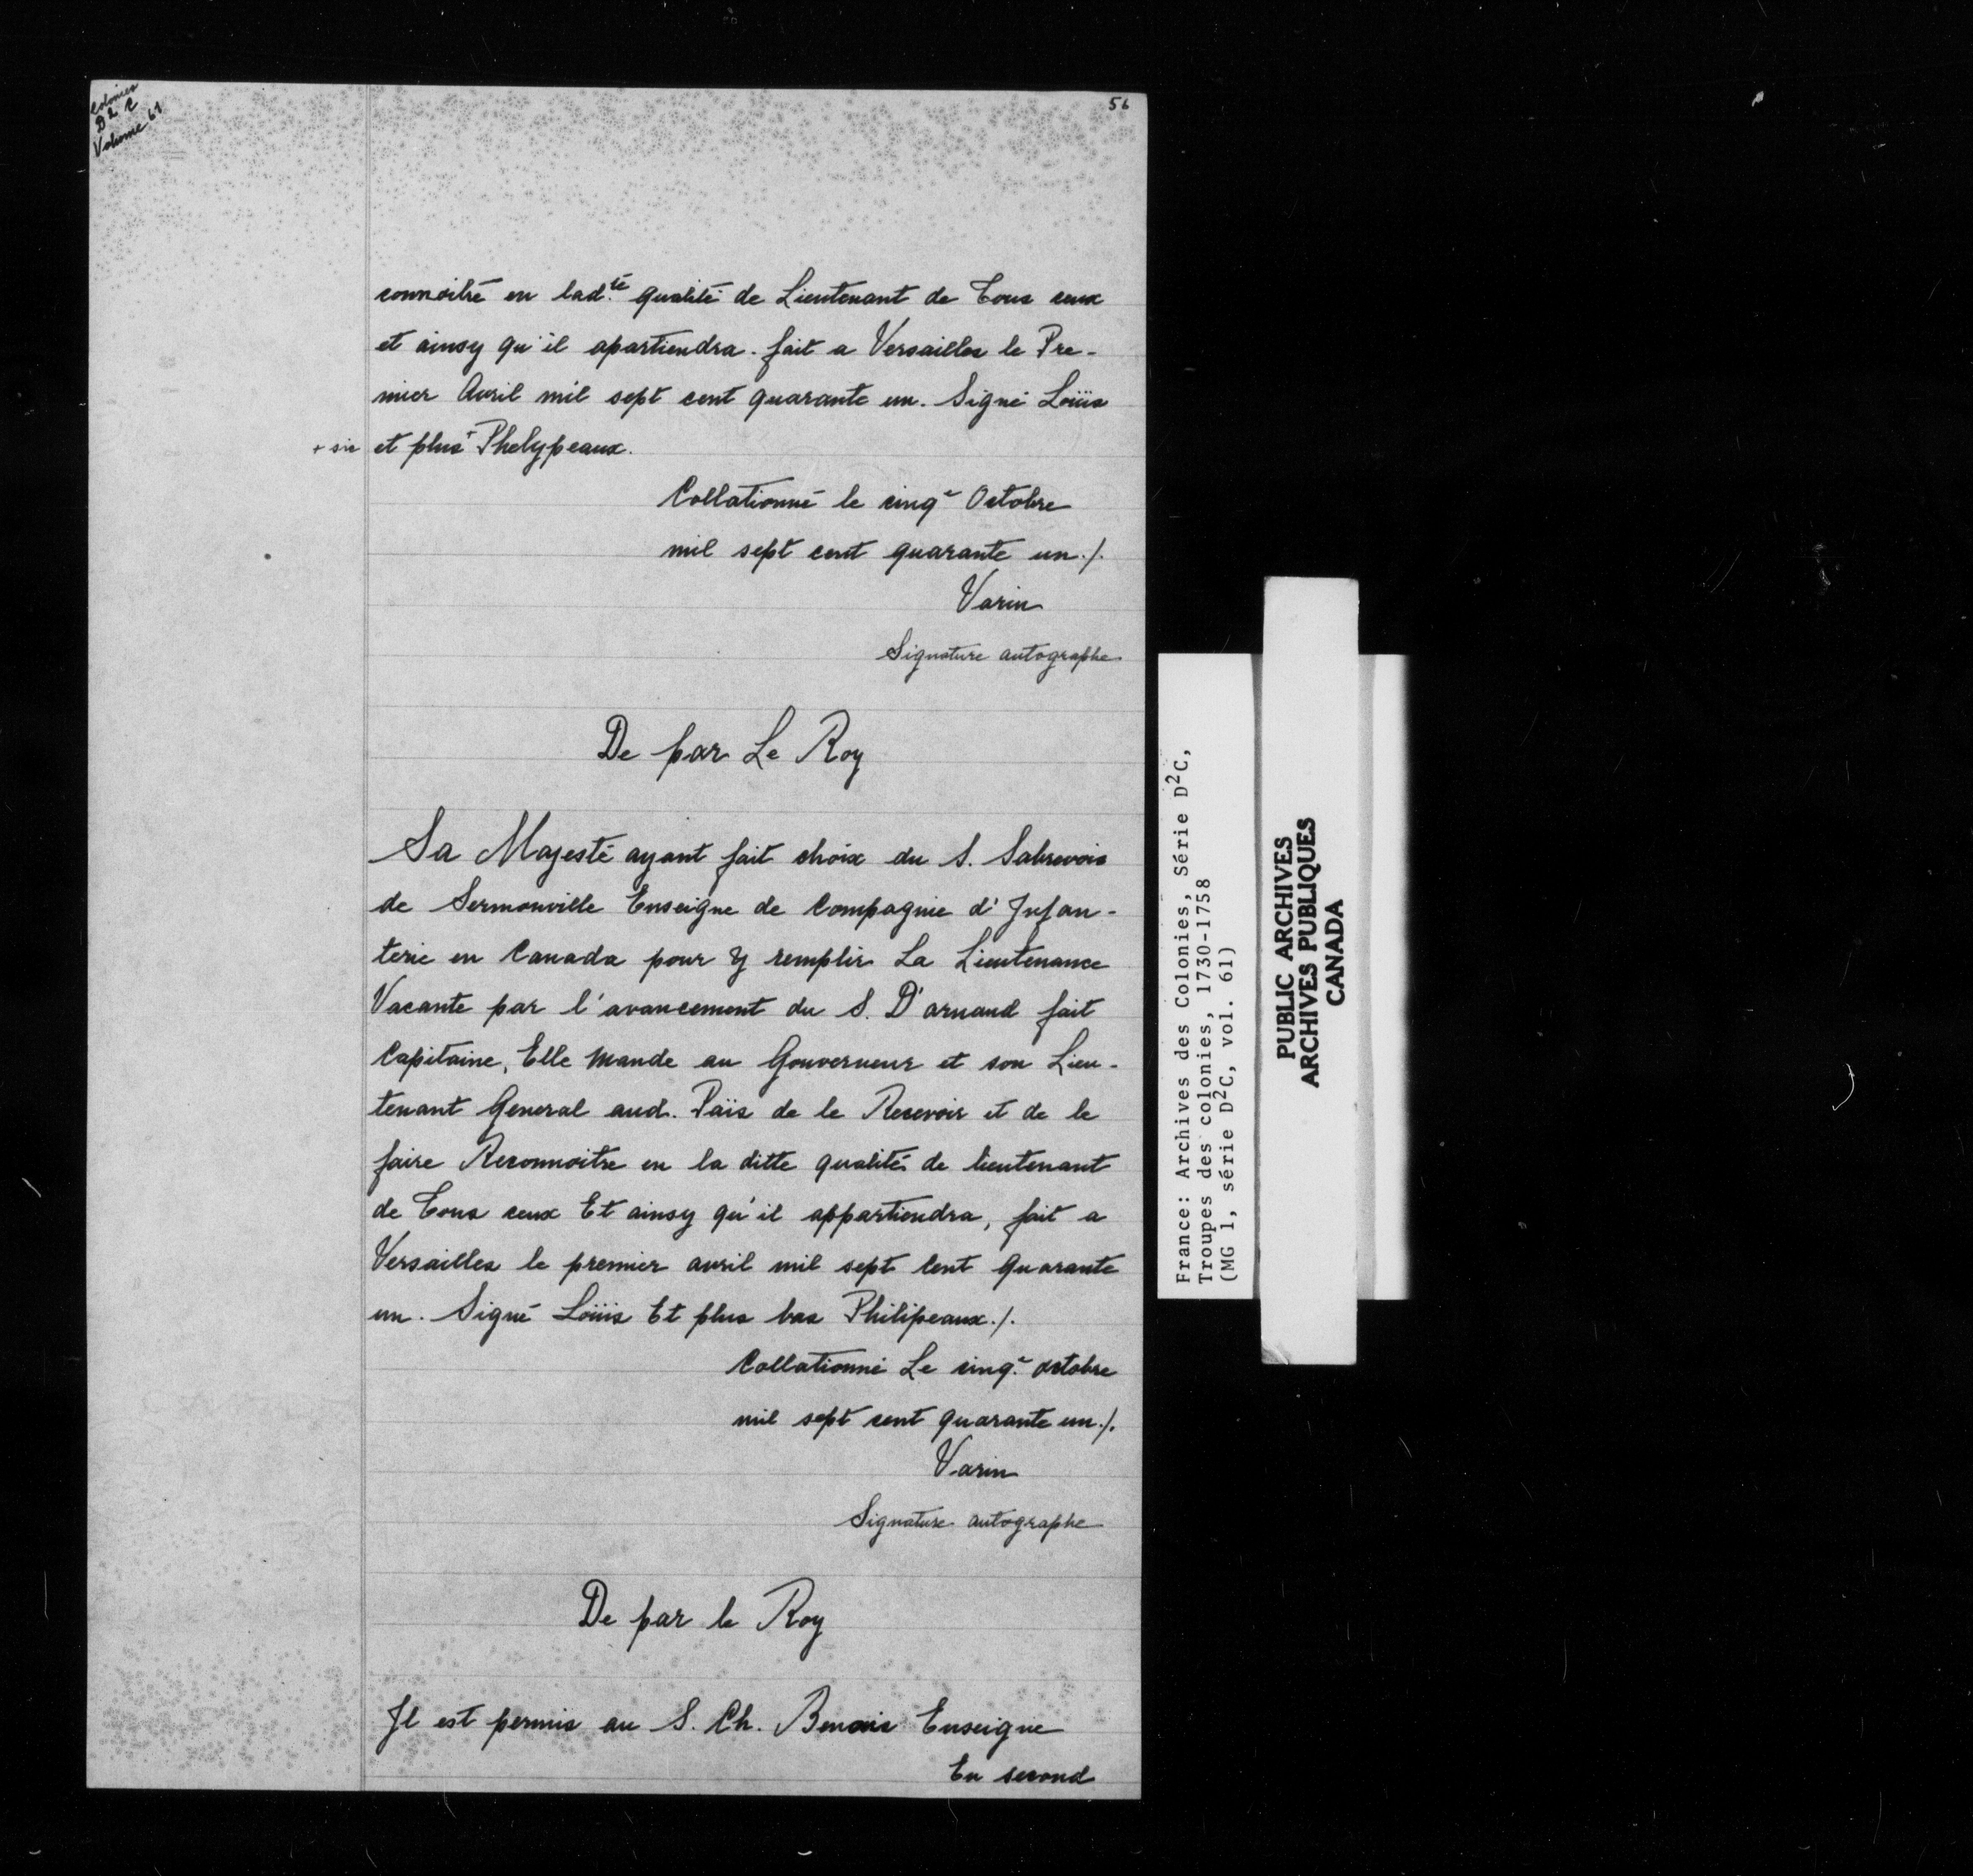 Colonies
D2 C
Volume 61
56
connoitré en lad.te qualité de Lieutenant de Tous ceux
et ainsy qu'il apartiendra. fait a Versailles le Pre-
mier Avril mil sept cent quarante un. Signé Loüis
+ sic et plus + Phelypeaux.
Collationné le cinqe Octobre
mil sept cent quarante un./.
Varin
Signature autographe
De par Le Roy
Sa Majesté ayant fait choix du S. Sabrevois
de Sermonville Enseigne de Compagnie d'Infan-
terie en Canada pour Y remplir La Lieutenance
Vacante par l'avancement du S. D'arnaud fait
Capitaine, Elle Mande au Gouverneur et son Lieu-
tenant General aud. Païs de le Recevoir et de le
faire Reconnoitre en la ditte qualité de lieutenant
de Tous ceux Et ainsy qu'il appartiendra, fait a
Versailles le premier avril mil sept Cent Quarante
un. Signé Loüis Et plus bas Philipeaux./.
Collationné Le cinq.e octobre
mil sept cent quarante un./.
Varin
Signature autographe
De par le Roy
Il est permis au S. Ch. Benois Enseigne
En second
France: Archives des Colonies, Série D2C,
Troupes des colonies, 1730-1758
(MG 1, série D2C, vol. 61)
PUBLIC ARCHIVES
ARCHIVES PUBLIQUES
CANADA